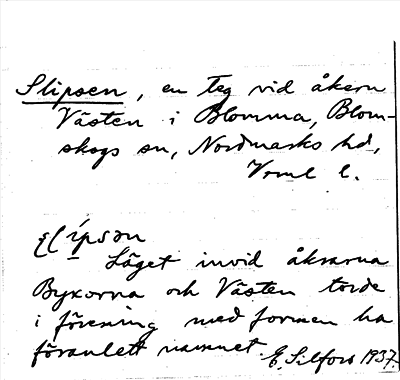 Slipsen, en teg vid åkern
Västen i Blomma, Blom-
skogs sn, Nordmarks hd,
Vrml l.
ípsən
Läget invid åkrarna
Byxorna och Västen torde
i förening med formen ha
föranlett namnet. E. Silfors 1937.